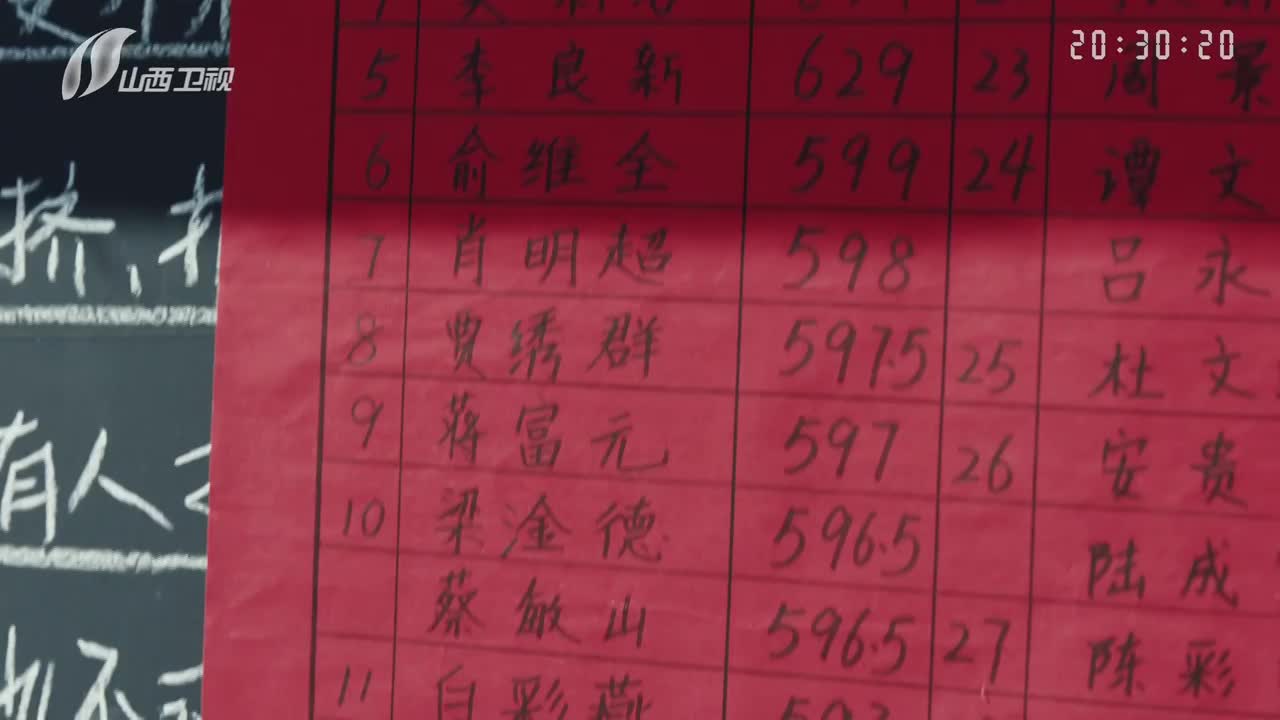 山西卫视 20:30:20
5 李良新 629 23 周景
6 俞维全 599 24 谭文
7 肖明超 598 吕永
8 贾绣群 597.5 25 杜文
9 蒋富元 597 26 安贵
10 梁淦德 596.5 陆成
蔡敏山 596.5 27 陈彩
11 白彩燕
挤、
有人
不